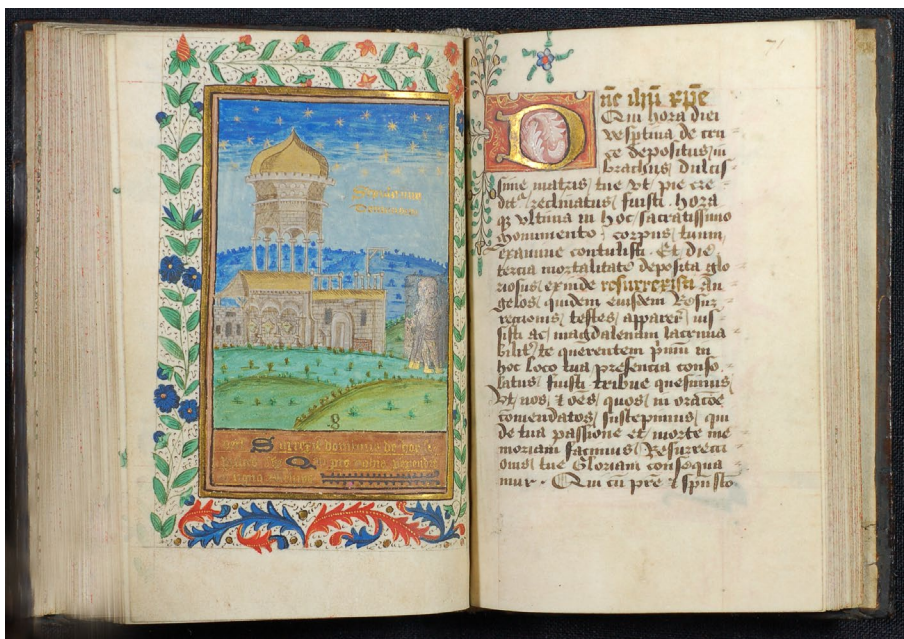 Surrexit dominus de hoc
Qui pro nobis pependit
71
Dñe ihũ xp̃e
Qui hora diei
vesp̃tina de cru-
ce depositus in
brachiis dulcis-
sime matris tue vt pie cre-
dit᷑ reclinatus fuisti. hora
q̃ vltima in hoc sacratissimo
monumento corpus tuum
exanime contulisti. Et die
tercia mortalitate deposita glo-
riosus exinde resurrexisti An-
gelos quidem eiusdem Resur-
rectionis testes apparer̃ ius-
sisti ac magdalenam lacrima
bilit᷑ te querentem p̃mũ in
hoc loco tua presencia conso-
latus fuisti tribue quesumus
vt nos ⁊ oẽs quos in oracõe
comendatos suscepimus qui
de tua passione et morte me
moriam facimus Resurrecti
onis tue Gloriam consequa
mur. Qui cũ pr̃e ⁊ spũ sc̃o